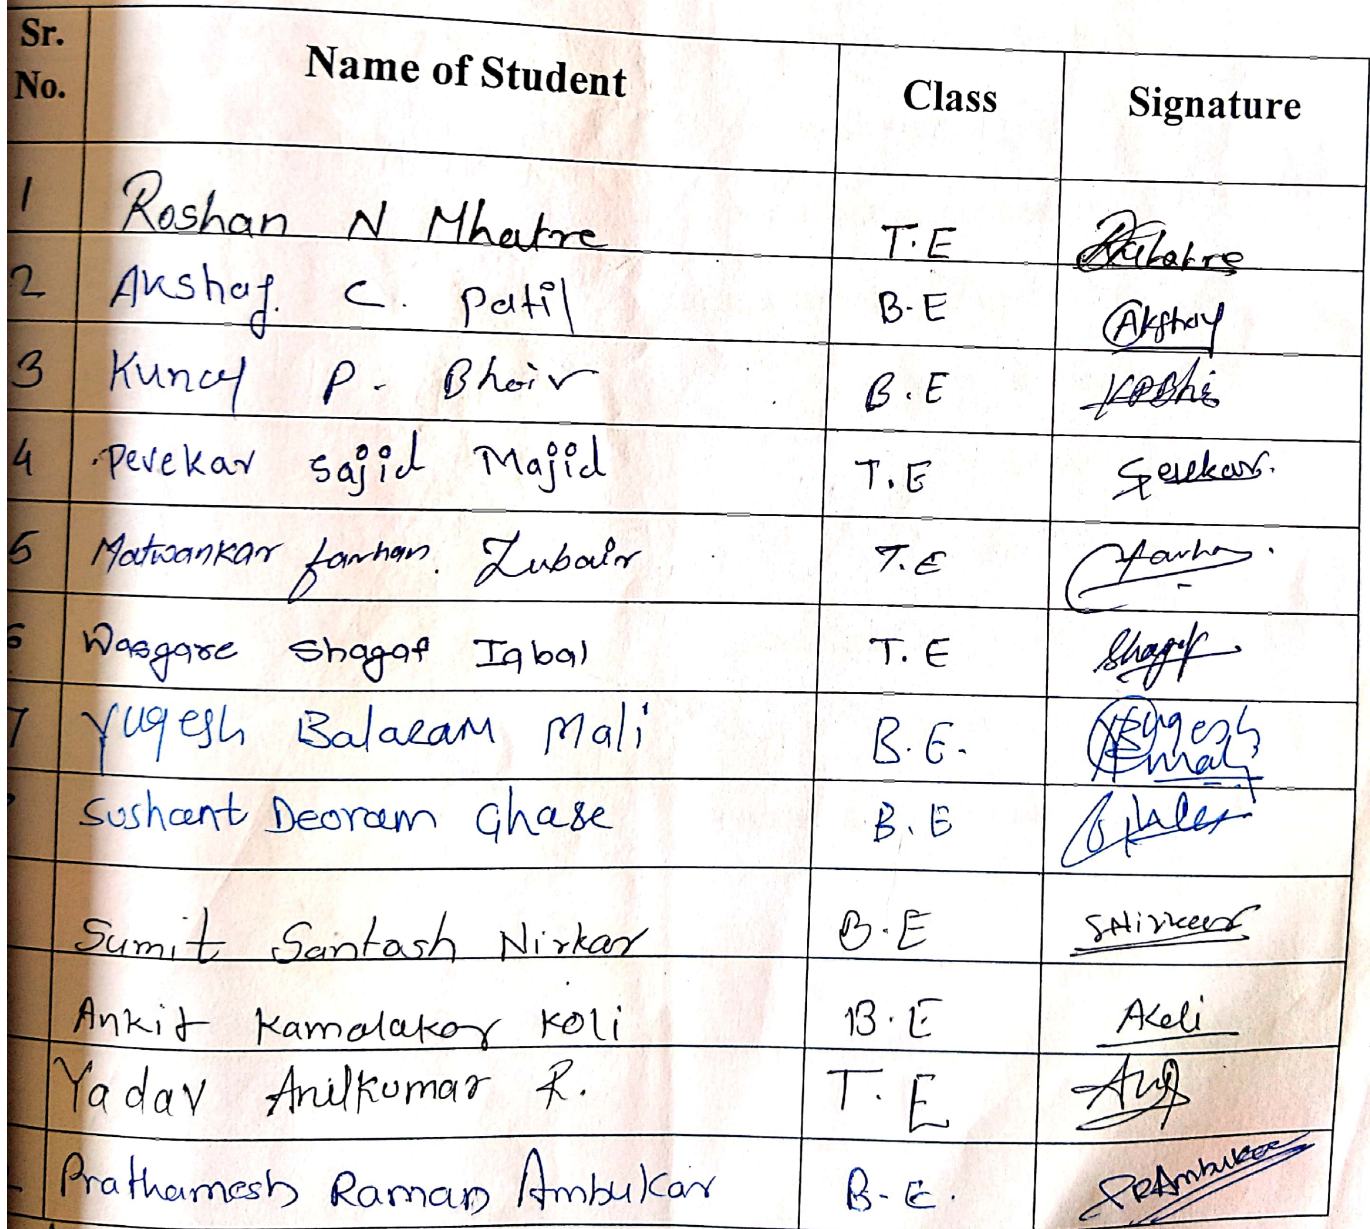 Sr. No. Name of Student Class Signature
1 Roshan N Mhatre T.E Mhatre
2 Akshay. C. Patil B.E Akshay
3 Kunal P. Bhoir B.E KPBhi
4 Perekar Sajid Majid T.E Perekar.
5 Matwankar farhan. Zubair T.E farhan.
6 Wasgare Shagaf Iqbal T.E Shagaf
7 Yugesh Balaram Mali B.E. Yugesh Mali
Sushant Deoram Ghase B.E
Sumit Santash Nirkar B.E SNirkar
Ankit Kamalakar Koli B.E AKoli
Yadav Anilkumar R. T.E
Prathamesh Raman Ambukar B.E. PRAmbukar